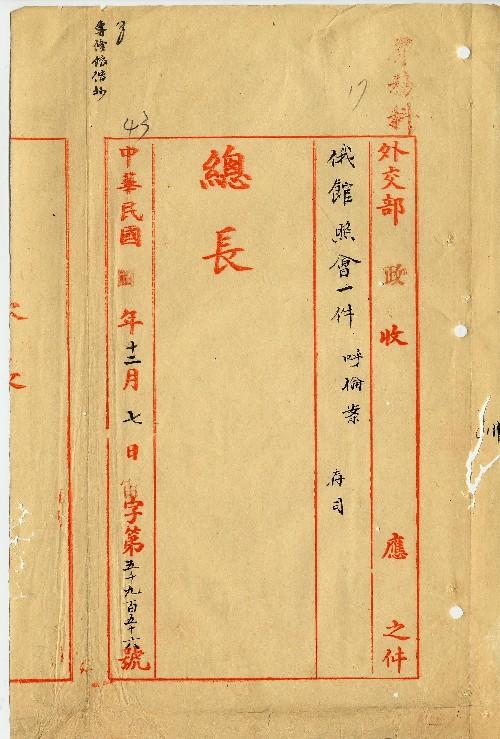 外交部 政 收 應 之件
俄館照會一件 呼倫案 存司
17
總長
中華民國 年十二月七日 字第五千九百五十六號
43